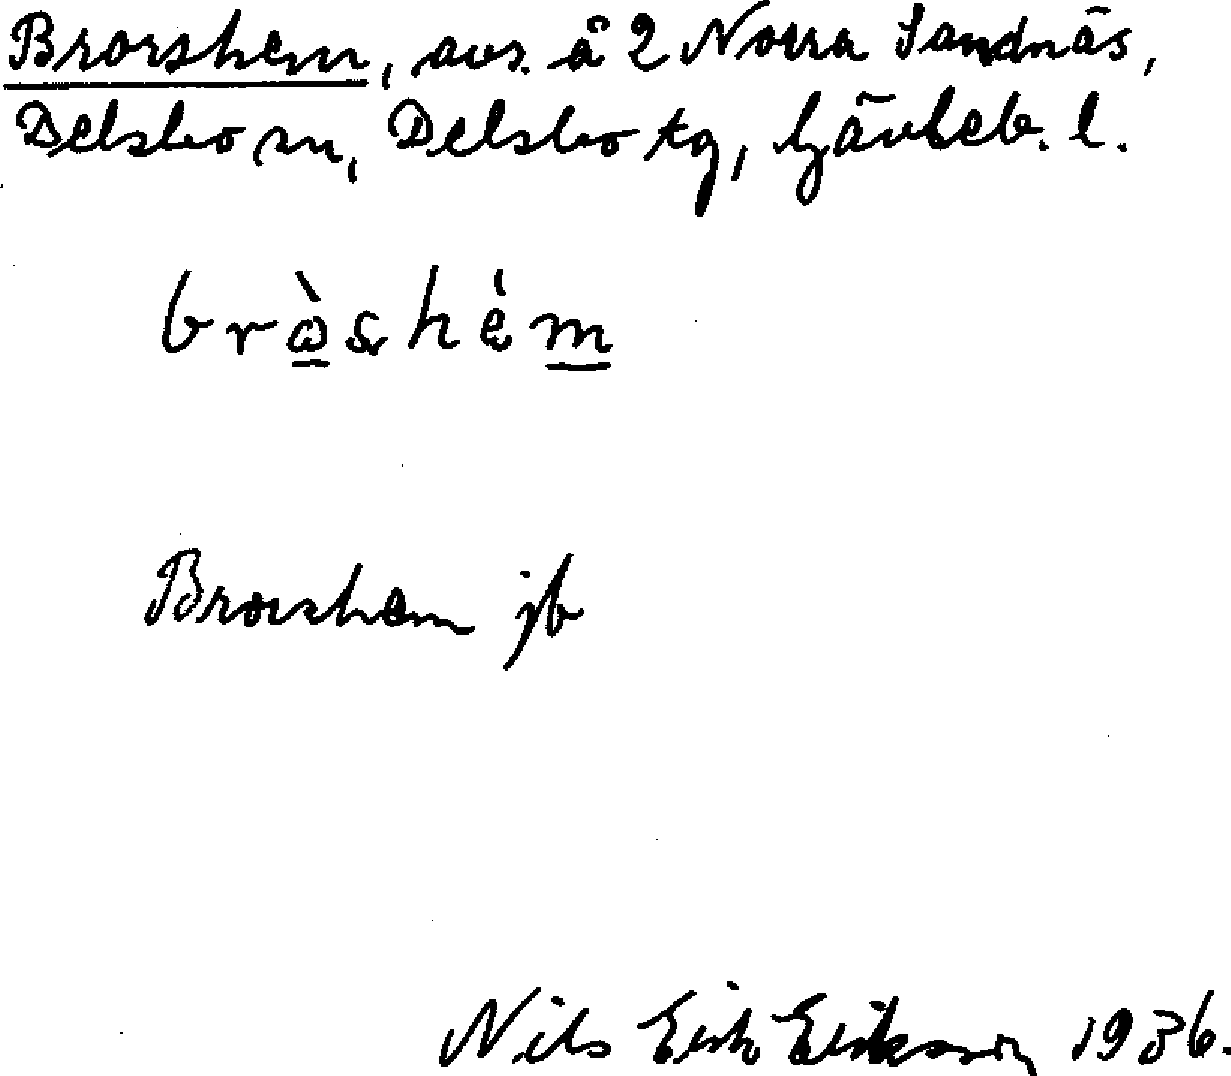 Brorshem, avs. å 2 Norra Sandnäs,
Delsbo sn, Delsbo tg, Gävleb. l.
bròshèm
Brorshem jb
Nils Erik Eriksson 1936.